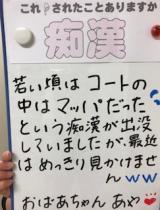 これ されたことありますか
痴漢
若い頃はコートの
中はマッパだった
という痴漢が出没
していましたが、最近
はめっきり見かけませ
んww
おばあちゃん あや♥